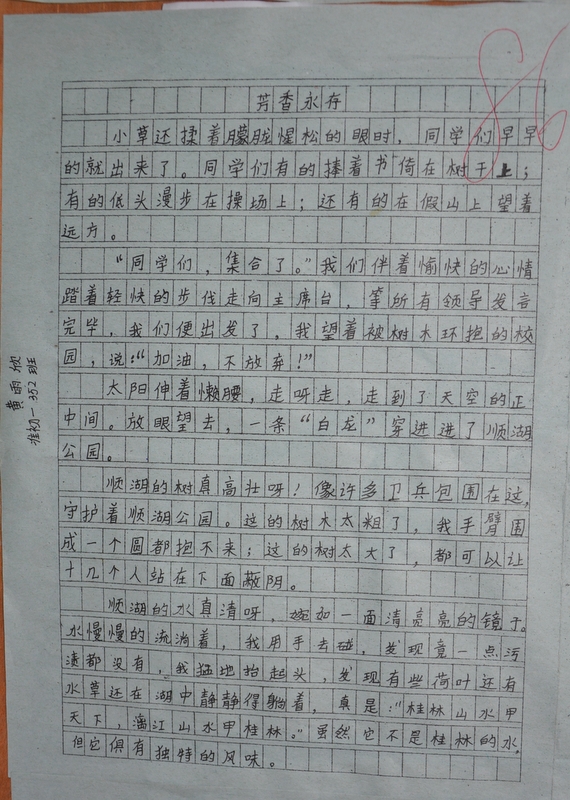 86
芳香永存
小草还揉着朦胧惺松的眼时，同学们早早
的就出来了。同学们有的捧着书倚在树干上；
有的低头漫步在操场上；还有的在假山上望着
远方。
“同学们，集合了。”我们伴着愉快的心情
踏着轻快的步伐走向主席台，等所有领导发言
完毕，我们便出发了，我望着被树木环抱的校
园，说：“加油，不放弃！”
太阳伸着懒腰，走呀走，走到了天空的正
中间。放眼望去，一条“白龙”穿进进了顺湖
公园。
顺湖的树真高壮呀！像许多卫兵包围在这，
守护着顺湖公园。这的树木太粗了，我手臂围
成一个圆都抱不来；这的树太大了，都可以让
十几个人站在下面蔽阴。
顺湖的水真清呀，宛如一面清亮亮的镜子。
水慢慢的流淌着，我用手去碰，发现竟一点污
渍都没有，我猛地抬起头，发现有些荷叶还有
水草还在湖中静静得躺着，真是：“桂林山水甲
天下，漓江山水甲桂林。”虽然它不是桂林的水，
但它俱有独特的风味。
黄雨欣
准初一352班